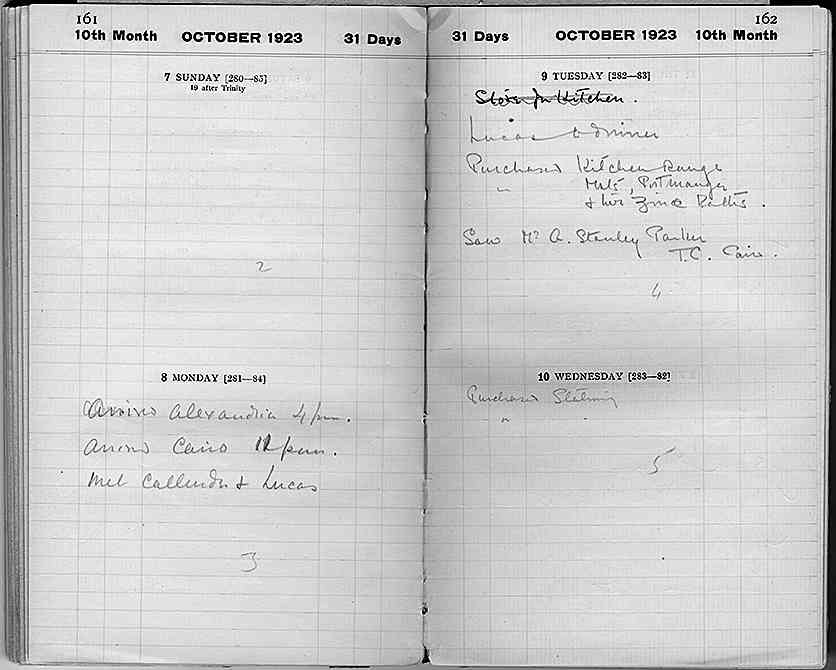 161
10th Month OCTOBER 1923 31 Days
7 SUNDAY [280—85]
19 after Trinity
2
8 MONDAY [281—84]
Arrived Alexandria 4 pm.
Arrived Cairo 11 pm.
Met Callender & Lucas
3
162
31 Days OCTOBER 1923 10th Month
9 TUESDAY [282—83]
Stove for Kitchen.
Lucas to dinner
Purchased Kitchen Range
" Mats, Portmanger
& two Zinc Baths.
Saw Mr A. Stanley Parker
T.C. Cairo.
4
10 WEDNESDAY [283—82]
Purchased
"
5